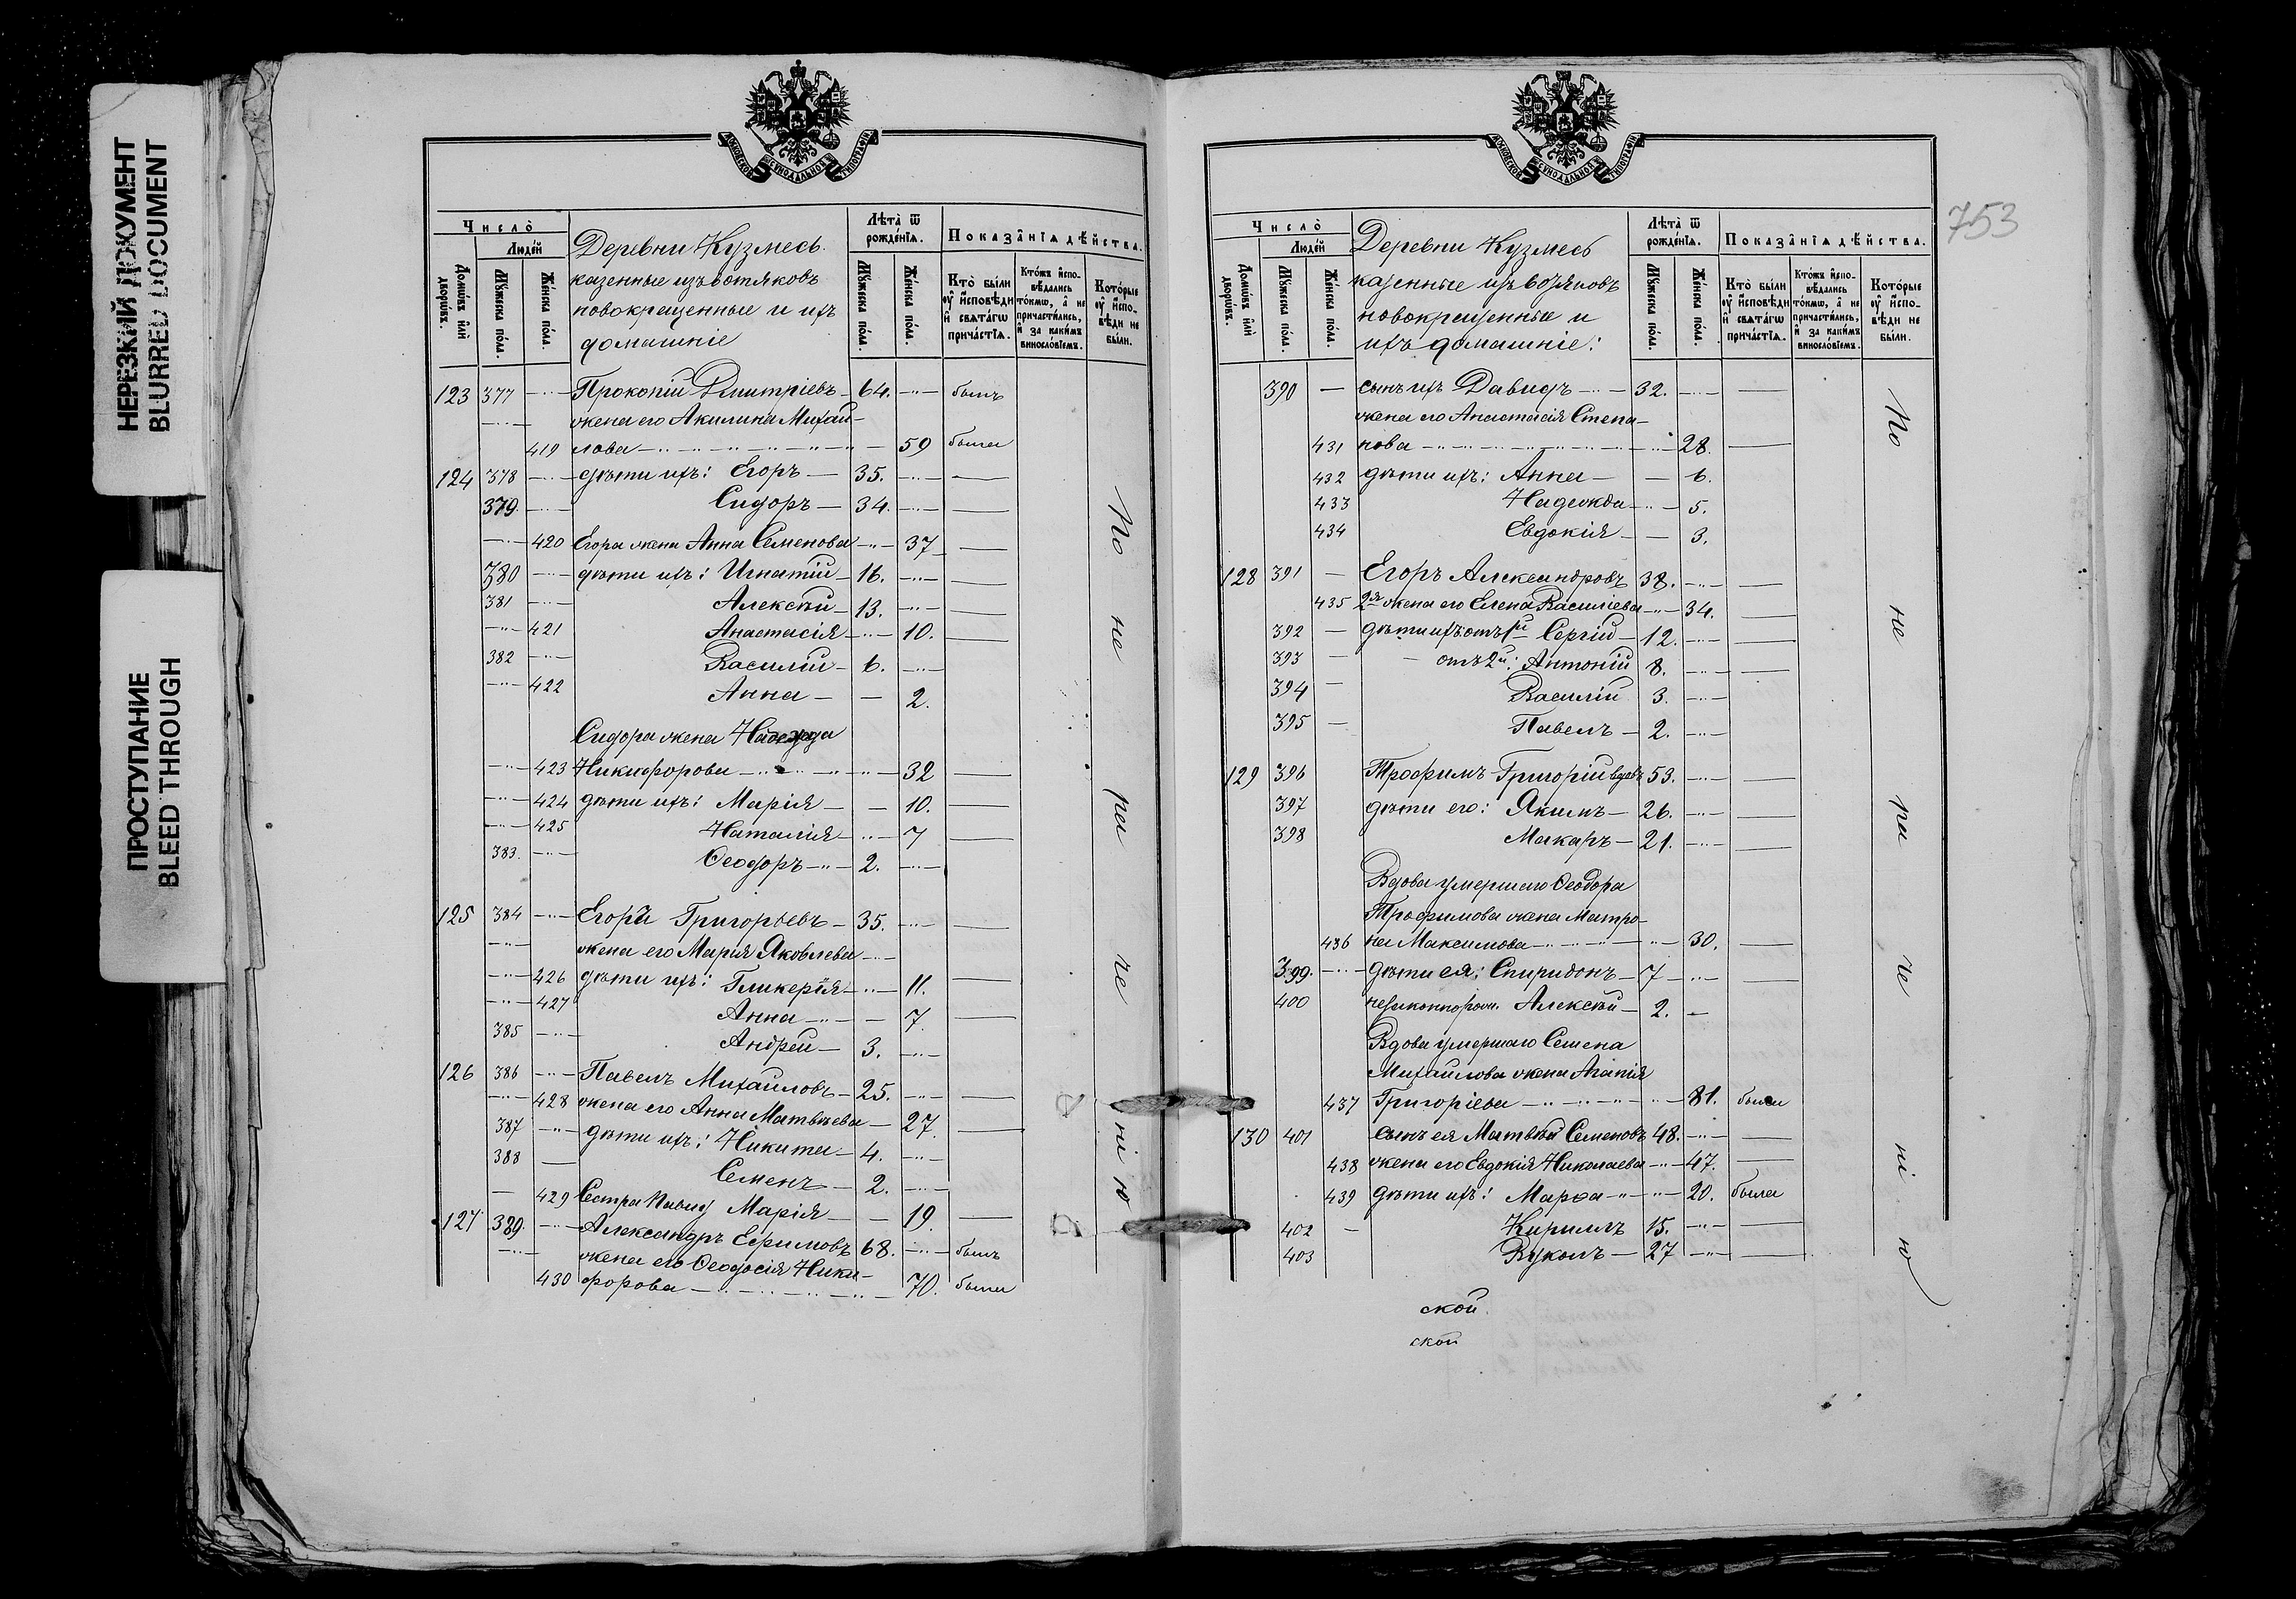 НЕРЕЗКИЙ ДОКУМЕНТ
BLURRED DOCUMENT
ПРОСТУПАНИЕ
BLEED THROUGH
Число̀
Людей
Домѡвъ или дворѡвъ.
Мꙋжеска пола.
Женска пола.
Деревни Кузмесь
казенные изъ вотяковъ
новокрещенные и ихъ
домашніе
Лѣта ѿ рожденїѧ.
Мꙋжеска пола.
Женска пола.
Показанїѧ дѣйства.
Кто были оу исповѣди и свѧтагѡ причастїѧ.
Ктожъ исповѣдались токмѡ, а не причастились, и за какимъ винословїемъ.
Которые оу исповѣди не были.
123 377 Прокопій Дмитріевъ 64. былъ
жена его Акилина Михай-
419 лова 59 была
124 378 дѣти ихъ: Егоръ 35.
379. Сидоръ 34.
420 Егора жена Анна Семенова 37
380 дѣти ихъ: Игнатій 16.
381 Алексѣй 13.
421 Анастасія 10.
382 Василій 6.
422 Анна 2.
Сидора жена Надежда
423 Никифорова 32
424 дѣти ихъ: Марія 10.
425 Наталія 7
383. Ѳеодоръ 2.
125 384 Егоръ Григорьевъ 35.
жена его Марія Яковлева
426 дѣти ихъ: Гликерія 11.
427 Анна 7.
385 Андрей 3.
126 386 Павелъ Михайловъ 25.
428 жена его Анна Матвѣева 27.
387 дѣти ихъ: Никита 4.
388 Семенъ 2.
429 Сестра Павлу Марія 19.
127 389. Александръ Ефимовъ 68. былъ
жена его Ѳеодосія Ники-
430 форова 70. была
По не ра че ні ю
753
Число̀
Людей
Домѡвъ или дворѡвъ.
Мꙋжеска пола.
Женска пола.
Деревни Кузмесь
казенные изъ вотяковъ
новокрещенные и
ихъ домашніе:
Лѣта ѿ рожденїѧ.
Мꙋжеска пола.
Женска пола.
Показанїѧ дѣйства.
Кто были оу исповѣди и свѧтагѡ причастїѧ.
Ктожъ исповѣдались токмѡ, а не причастились, и за какимъ винословїемъ.
Которые оу исповѣди не были.
390 сынъ ихъ Давидъ 32.
жена его Анастасія Степа-
431 нова 28.
432 дѣти ихъ: Анна 6.
433 Надежда 5.
434 Евдокія 3.
128 391 Егоръ Александровъ 38.
435 2я жена его Елена Василіева 34.
392 дѣти ихъ отъ 1й Сергій 12.
393 отъ 2й: Антоній 8.
394 Василій 3.
395 Павелъ 2.
129 396 Трофимъ Григорій вдовъ 53.
397 дѣти его: Якимъ 26.
398 Макаръ 21.
Вдова умершаго Ѳеодора
Трофимова жена Матро-
436 на Максимова 30.
399. дѣти ея: Спиридонъ 7
400 незаконнорож. Алексѣй 2.
Вдова умершаго Семена
Михайлова жена Агапія
437 Григоріева 81. была
130 401 сынъ ея Матвѣй Семеновъ 48.
438 жена его Евдокія Николаева 47.
439 дѣти ихъ: Марѳа 20. была
402 Кириллъ 15.
403 Вуколъ 27
По не ра че ні ю
ской.
ской